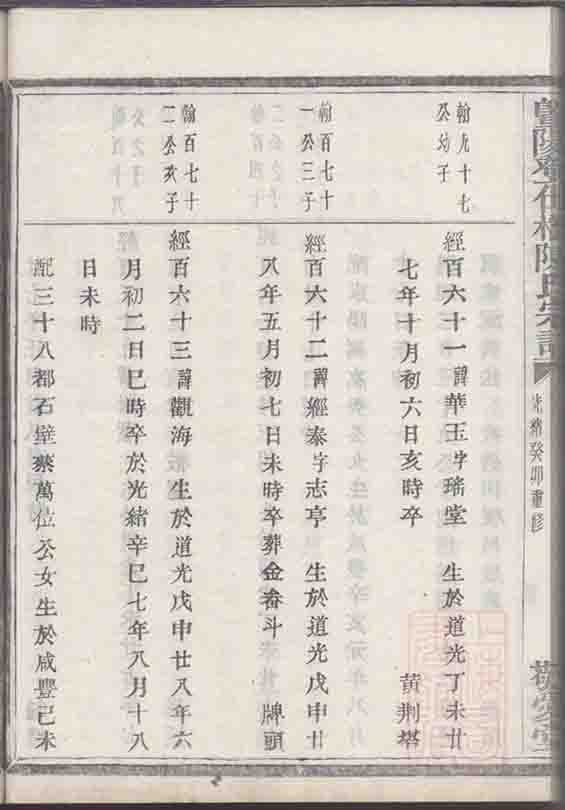 暨陽
陳氏宗譜
光緒癸卯重修
翰九十七
公幼子
經百六十一諱華玉字瑤堂 生於道光丁未廿
七年十月初六日亥時卒 黄荆塔
翰百七十
一公三子
經百六十二諱經泰字志亭 生於道光戊申廿
八年五月初七日未時卒葬金畚斗 牌頭
翰百七十
二公次子
經百六十三諱觀海 生於道光戊申廿八年六
月初二日巳時卒於光緒辛巳七年八月十八
日未時
配三十八都石壁蔡萬位公女生於咸豐己未